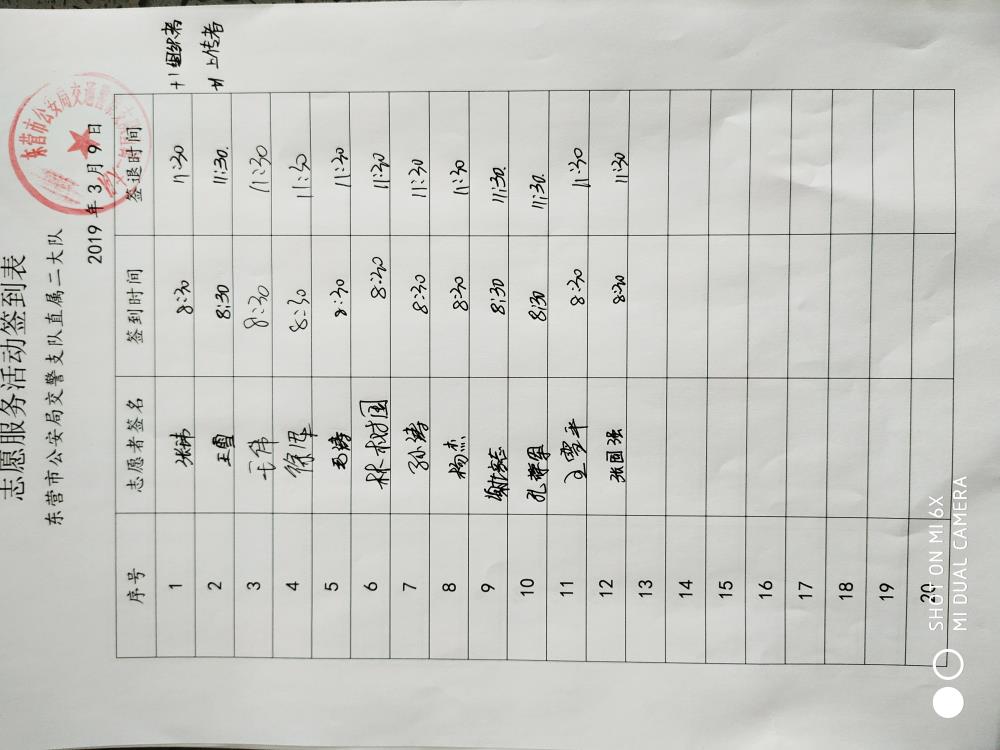 志愿服务活动签到表
东营市公安局交警支队直属二大队
2019 年 3 月 9 日
序号 志愿者签名 签到时间 签退时间
1 张沛 8:30 11:30 组织者
2 王雪 8:30 11:30. 上传者
3 王伟 8:30 11:30
4 徐军 8:30 11:30
5 毛涛 8:30 11:30
6 林树国 8:30 11:30
7 孙涛 8:30 11:30
8 杨杰 8:30 11:30
9 8:30 11:30.
10 8:30 11:30.
11 8:30 11:30
12 张国强 8:30 11:30
13
14
15
16
17
18
19
20
东营市公安局交通警察支队
SHOT ON MI 6X
MI DUAL CAMERA